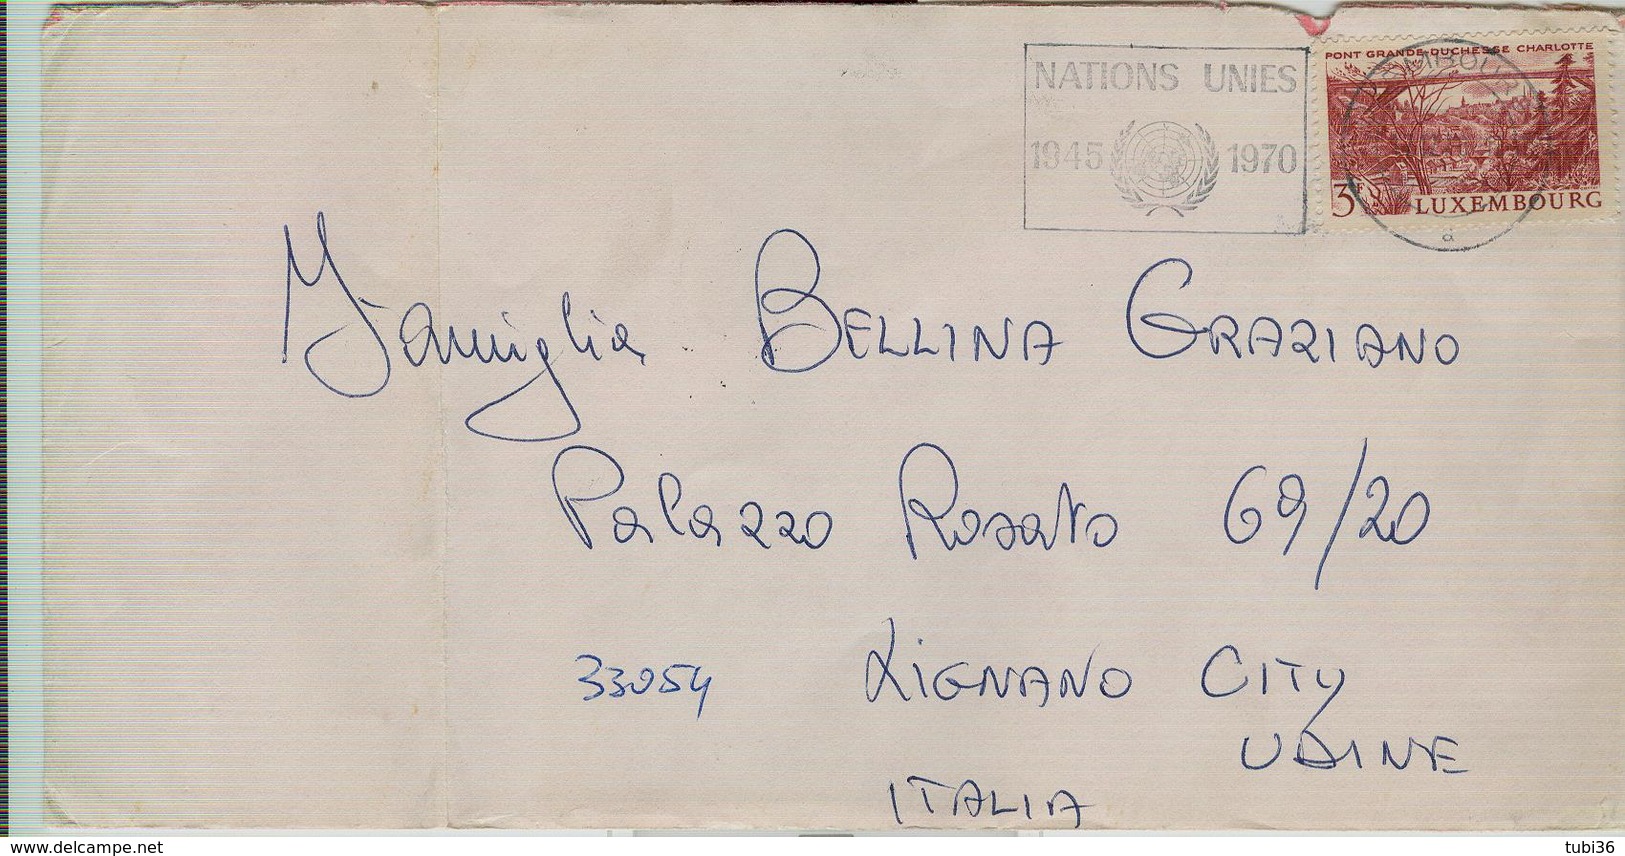 NATIONS UNIES
1945 1970
PONT GRANDE-DUCHESSE CHARLOTTE
3F LUXEMBOURG
a
Famiglia BELLINA GRAZIANO
Palazzo Rosato 69/20
33054 LIGNANO CITY
UDINE
ITALIA
www.delcampe.net
tubi36